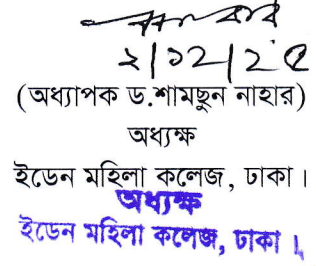 ২/১২/২৫
(অধ্যাপক ড.শামছুন নাহার)
অধ্যক্ষ
ইডেন মহিলা কলেজ, ঢাকা।
অধ্যক্ষ
ইডেন মহিলা কলেজ, ঢাকা।